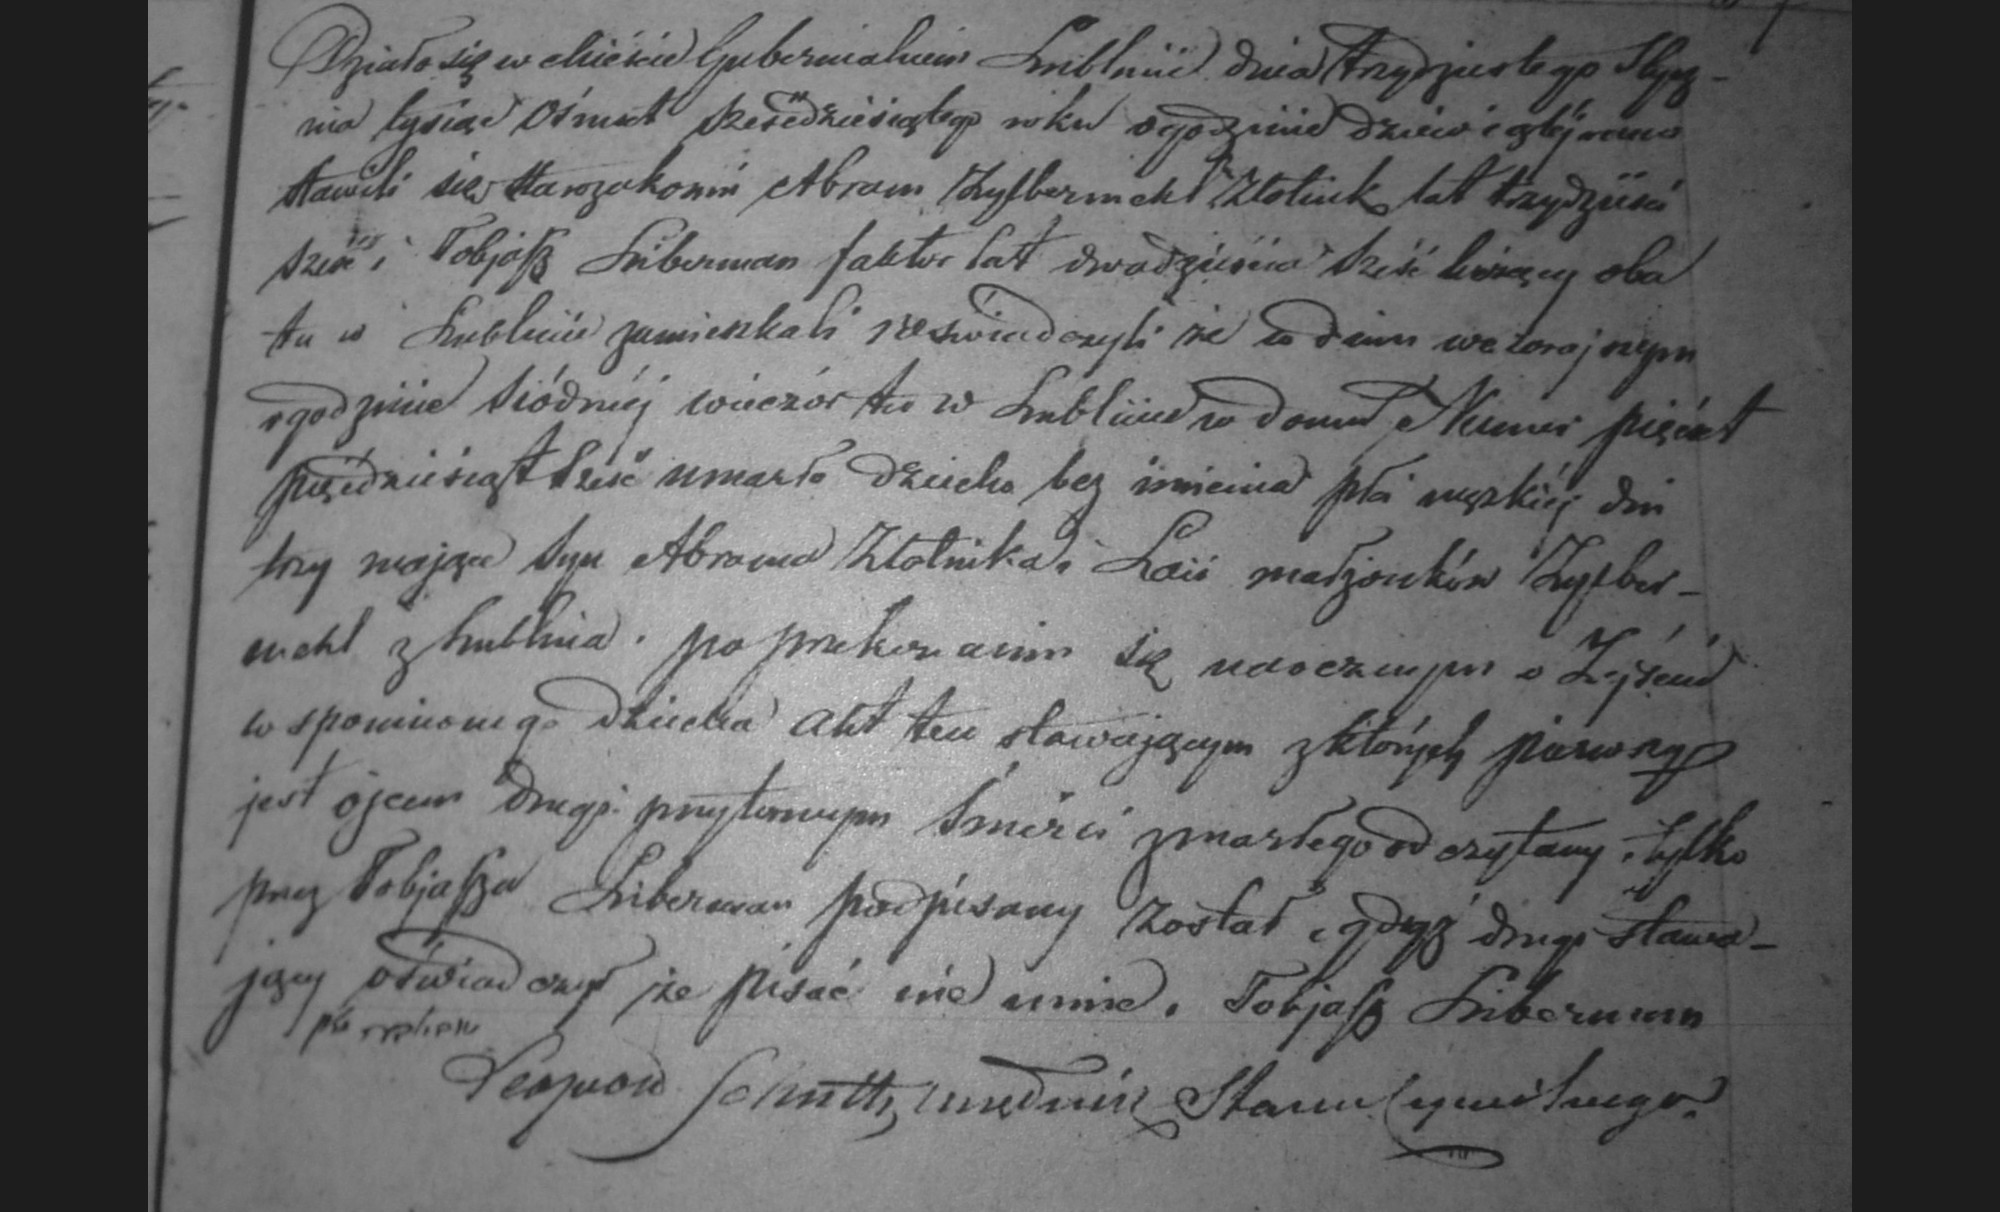 Działo się w Mieście Gubernialnem Lublinie dnia trzydziestego Stycz-
nia tysiąc ośmset sześćdziesiątego roku o godzinie dziewiątéj rano
stawili się starozakonni Abram Zylbernekl Złotnik lat trzydzieści
sześć i Tobjasz Liberman faktor lat dwadzieścia sześć liczący oba
tu w Lublinie zamieszkali i oświadczyli że w dniu wczorajszym
o godzinie siódméj wieczór tu w Lublinie w domu Numer pięćset
pięćdziesiąt sześć umarło dziecko bez imienia płci męzkiéj dni
trzy mające syn Abrama Złotnika i Łai małżonków Zylber-
nekl z Lublina. po przekonaniu się naocznym o Zejściu
wspomionego dziecka Akt ten stawającym z których pierwszy
jest ojcem drugi przytomnym śmierci zmarłego odczytany i tylko
przez Tobjasza Liberman podpisany został, gdyż drugi stawa-
jący oświadczył że pisać nie umie. Tobjasz Liberman
Leopold Schultz Urzędnik Stanu Cywilnego.